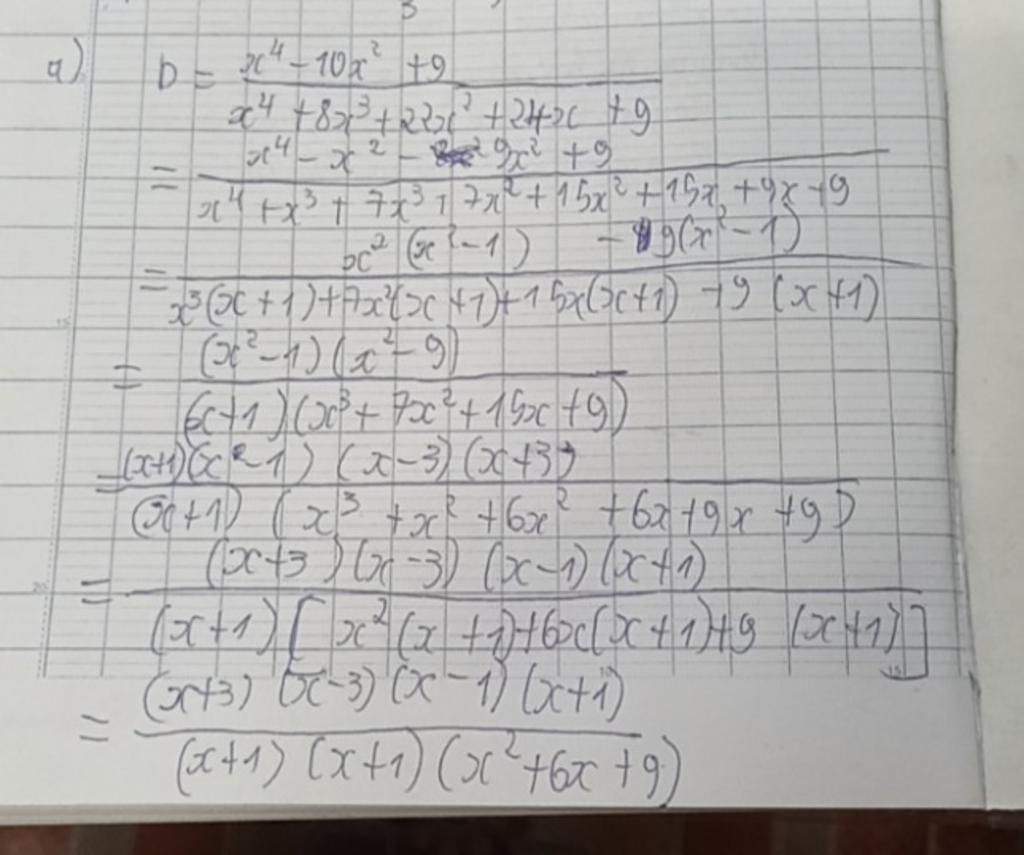 a) D = x⁴ - 10x² + 9
x⁴ + 8x³ + 22x² + 24x + 9
= x⁴ - x² - 9x² + 9
x⁴ + x³ + 7x³ + 7x² + 15x² + 15x + 9x + 9
= x² (x² - 1) - 9(x² - 1)
x³(x + 1) + 7x²(x + 1) + 15x(x + 1) + 9 (x + 1)
= (x² - 1) (x² - 9)
(x + 1) (x³ + 7x² + 15x + 9)
= (x+1)(x - 1) (x - 3) (x + 3)
(x + 1) (x³ + x² + 6x² + 6x + 9x + 9)
= (x + 3) (x - 3) (x - 1) (x + 1)
(x + 1) [x² (x + 1) + 6x(x + 1) + 9 (x + 1)]
= (x + 3) (x - 3) (x - 1) (x + 1)
(x + 1) (x + 1) (x² + 6x + 9)